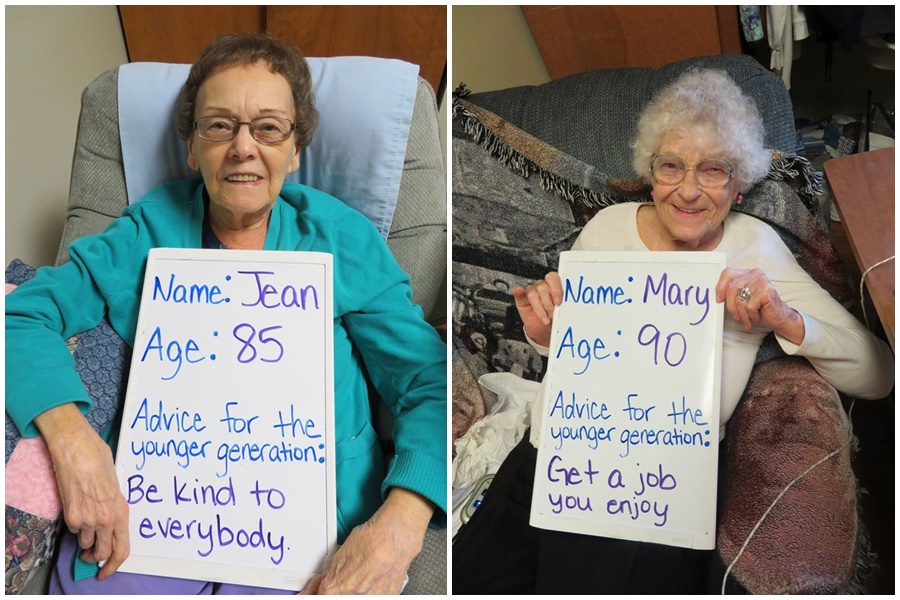 Name: Jean
Age: 85
Advice for the
younger generation:
Be kind to
everybody.
Name: Mary
Age: 90
Advice for the
younger generation:
Get a job
you enjoy